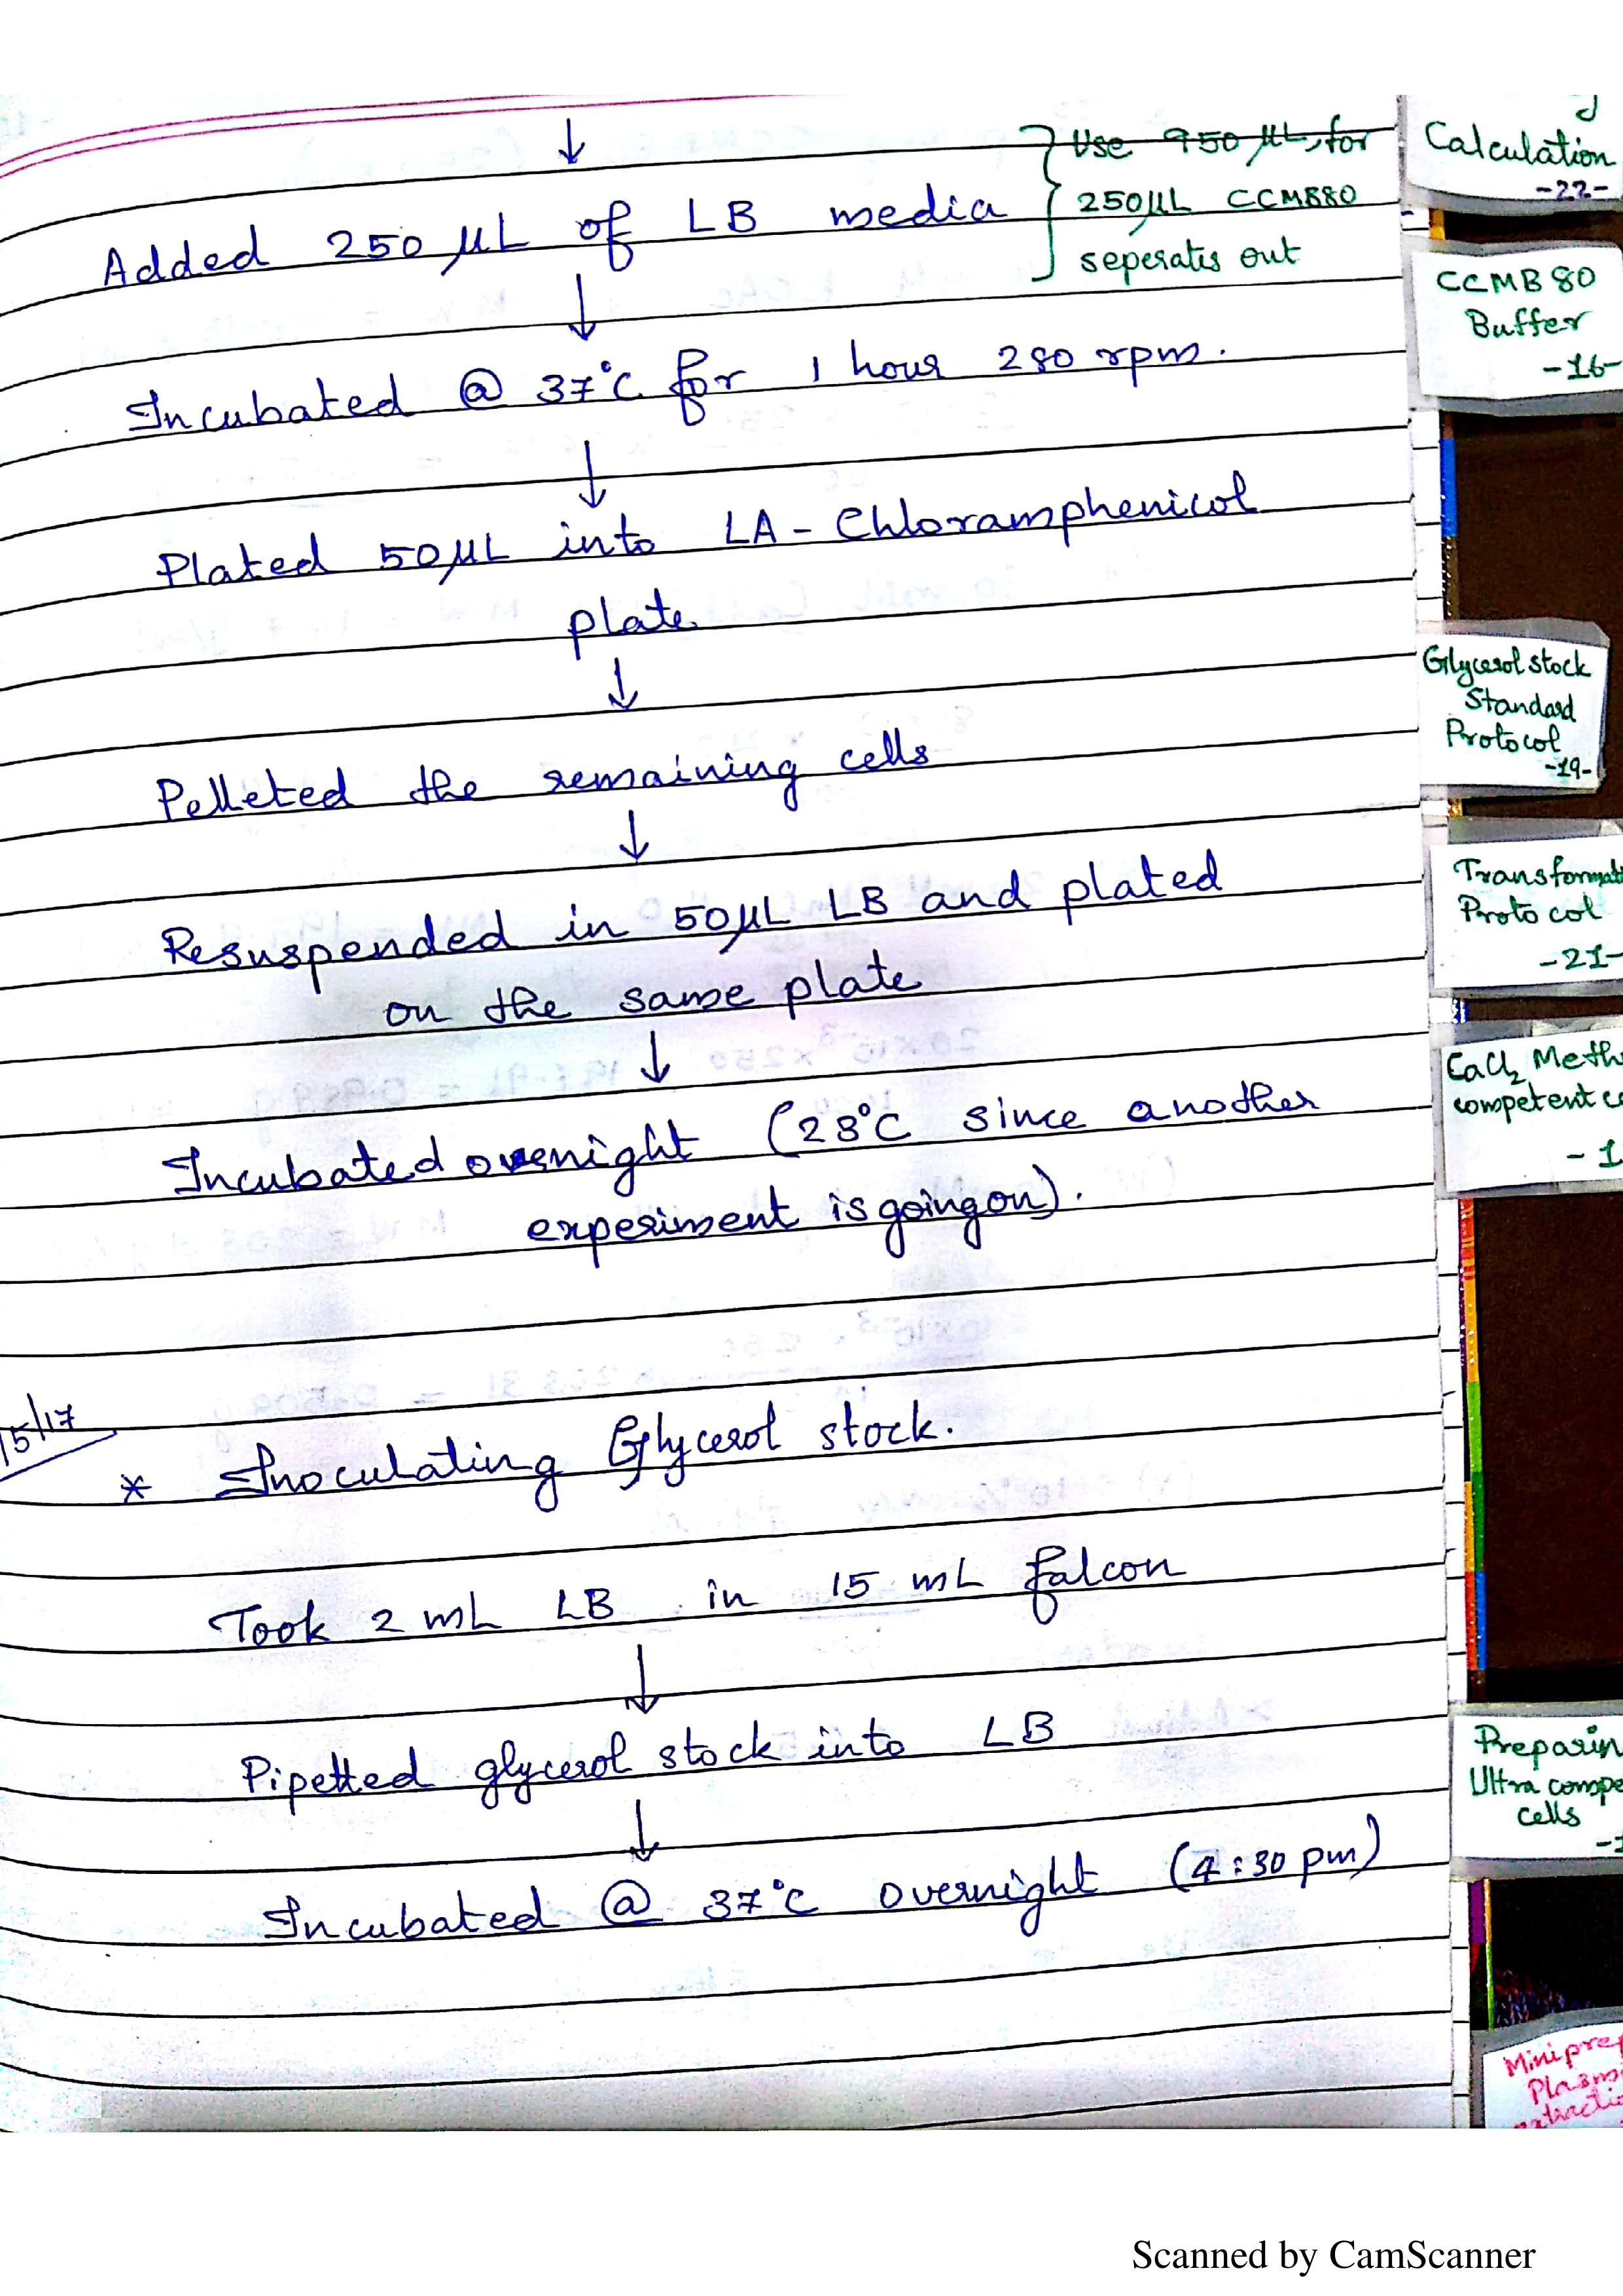 ↓
Added 250 µL of LB media
Use 950 µL, for
250µL CCMB80
seperates out
↓
Incubated @ 37°C for 1 hour 280 rpm.
↓
Plated 50µL into LA - Chloramphenicol
plate
↓
Pelleted the remaining cells
↓
Resuspended in 50µL LB and plated
on the same plate
↓
Incubated overnight (28°C since another
experiment is going on).
/5/17
* Inoculating Glycerol stock.
Took 2 mL LB in 15 mL falcon
↓
Pipetted glycerol stock into LB
↓
Incubated @ 37°C overnight (4:30 pm)
Calculation
-22-
CCMB 80
Buffer
-16-
Glycerol stock
Standard
Protocol
-19-
Transformat
Protocol
-21-
CaCl2 Meth
competent c
- 1
Preparin
Ultra compe
cells
-1
Miniprep
Plasmi
Scanned by CamScanner